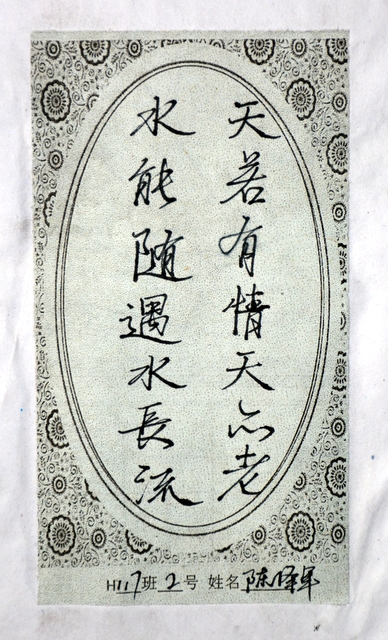 天若有情天亦老
水能随遇水長流
H117班2号 姓名 陈